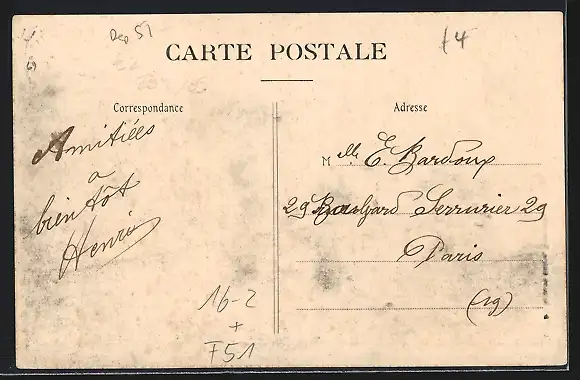 Dep 51
£4
CARTE POSTALE
Correspondance
Adresse
Amitiées
a
bientôt
Henri
Mlle E. Bardoux
29 Boulevard Serrurier 29
Paris
(19)
16-2
+
F51